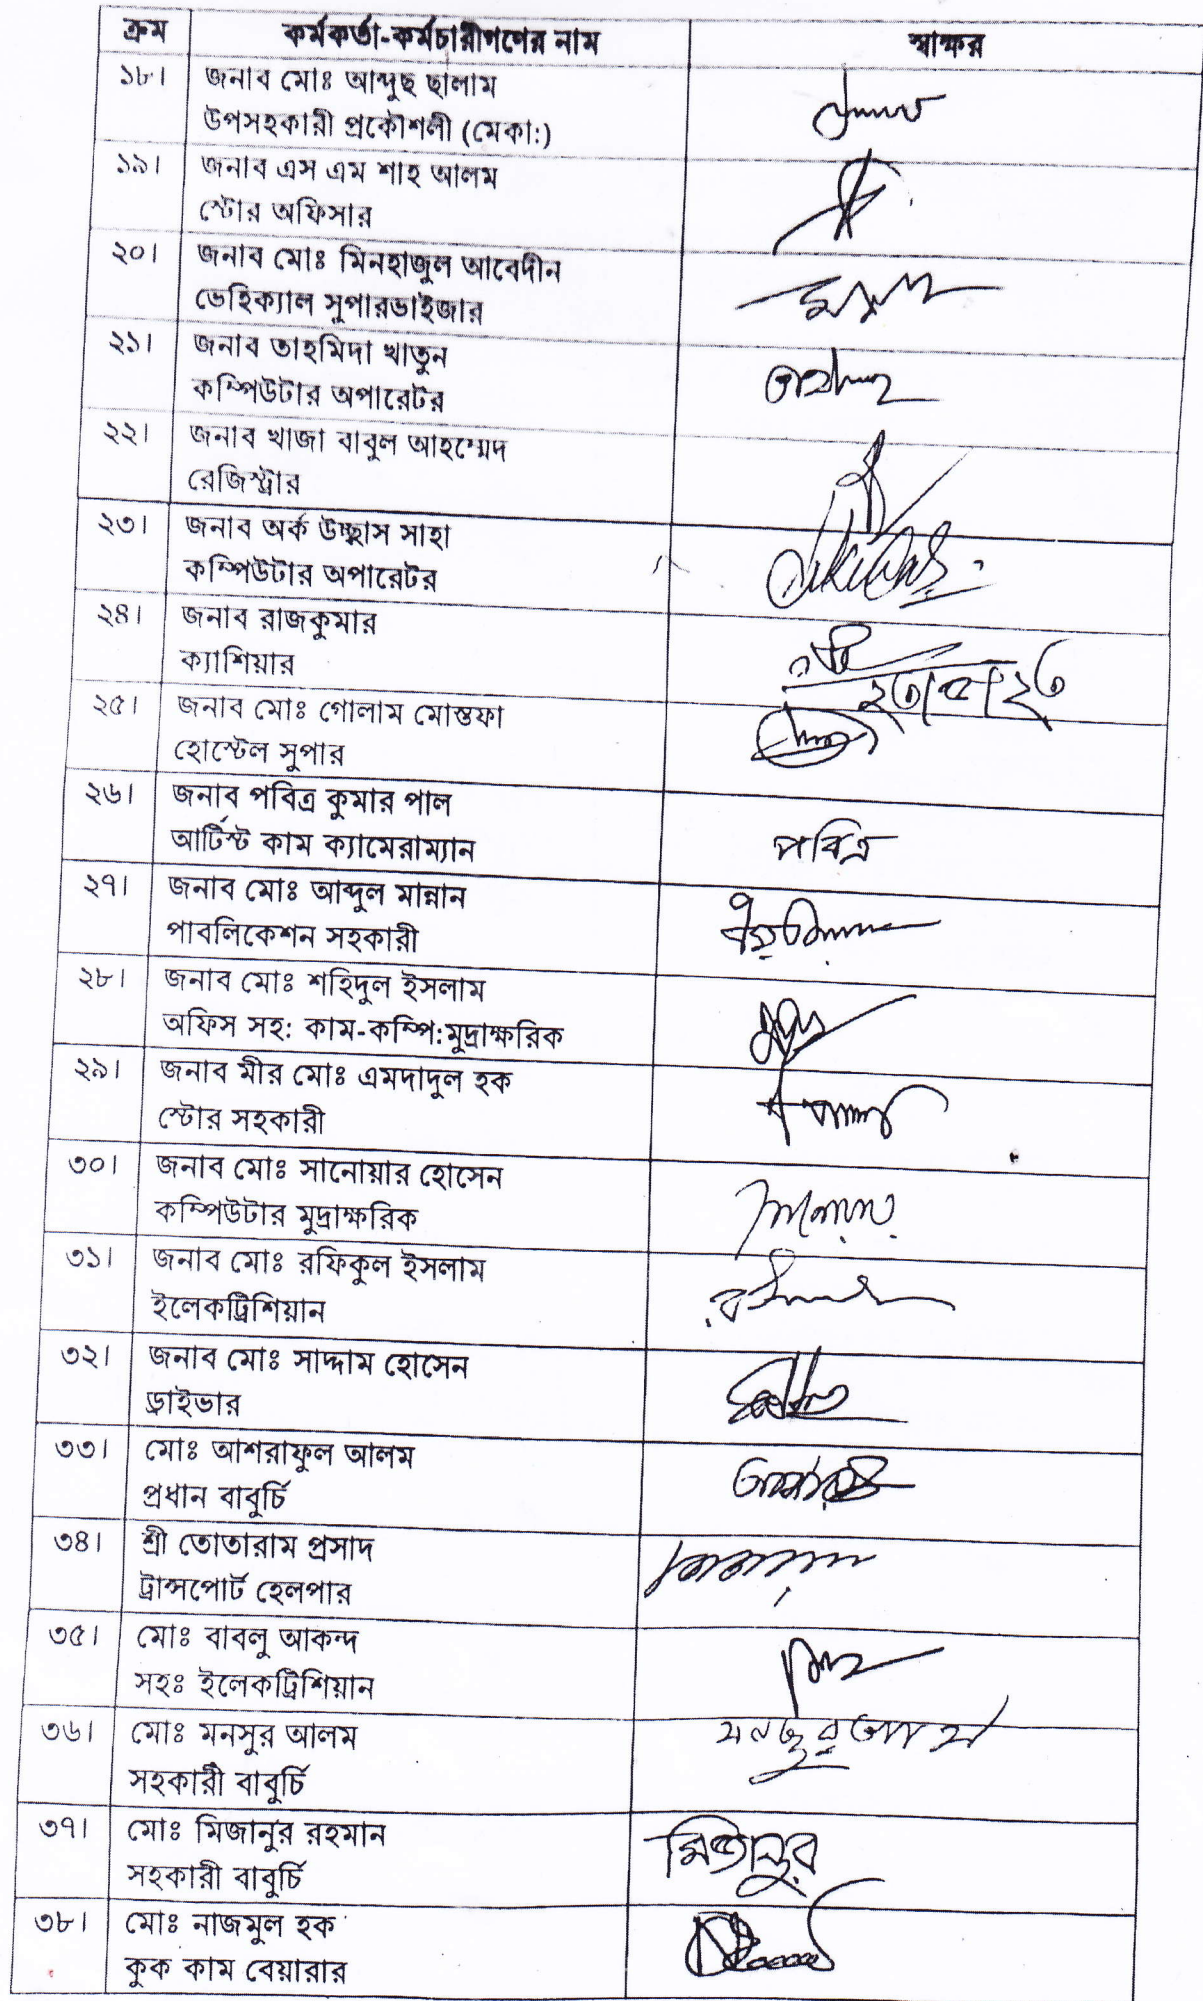 ক্রম কর্মকর্তা-কর্মচারীগণের নাম স্বাক্ষর
১৮। জনাব মোঃ আব্দুছ ছালাম
উপসহকারী প্রকৌশলী (মেকা:)
১৯। জনাব এস এম শাহ আলম
স্টোর অফিসার
২০। জনাব মোঃ মিনহাজুল আবেদীন
ভেহিক্যাল সুপারভাইজার
২১। জনাব তাহমিদা খাতুন
কম্পিউটার অপারেটর
২২। জনাব খাজা বাবুল আহম্মেদ
রেজিস্ট্রার
২৩। জনাব অর্ক উচ্ছ্বাস সাহা
কম্পিউটার অপারেটর
২৪। জনাব রাজকুমার
ক্যাশিয়ার
২৫। জনাব মোঃ গোলাম মোস্তফা
হোস্টেল সুপার
২৬। জনাব পবিত্র কুমার পাল
আর্টিস্ট কাম ক্যামেরাম্যান পবিত্র
২৭। জনাব মোঃ আব্দুল মান্নান
পাবলিকেশন সহকারী
২৮। জনাব মোঃ শহিদুল ইসলাম
অফিস সহ: কাম-কম্পি:মুদ্রাক্ষরিক
২৯। জনাব মীর মোঃ এমদাদুল হক
স্টোর সহকারী
৩০। জনাব মোঃ সানোয়ার হোসেন
কম্পিউটার মুদ্রাক্ষরিক
৩১। জনাব মোঃ রফিকুল ইসলাম
ইলেকট্রিশিয়ান
৩২। জনাব মোঃ সাদ্দাম হোসেন
ড্রাইভার
৩৩। মোঃ আশরাফুল আলম
প্রধান বাবুর্চি
৩৪। শ্রী তোতারাম প্রসাদ
ট্রান্সপোর্ট হেলপার
৩৫। মোঃ বাবলু আকন্দ
সহঃ ইলেকট্রিশিয়ান
৩৬। মোঃ মনসুর আলম
সহকারী বাবুর্চি
৩৭। মোঃ মিজানুর রহমান মিজানুর
সহকারী বাবুর্চি
৩৮। মোঃ নাজমুল হক
কুক কাম বেয়ারার